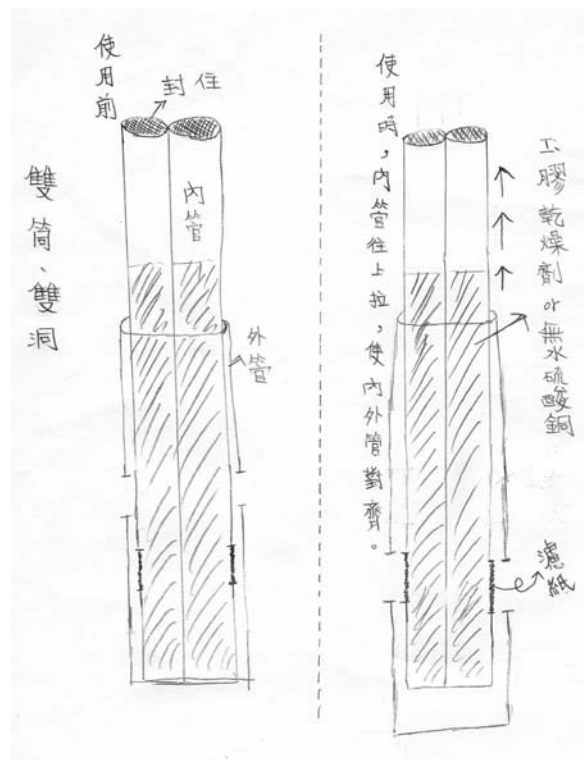 雙筒、雙洞
使用前
封住
內管
外管
使用時，內管往上拉，使內外管對齊。
工膠乾燥劑 or 無水硫酸銅
濾紙